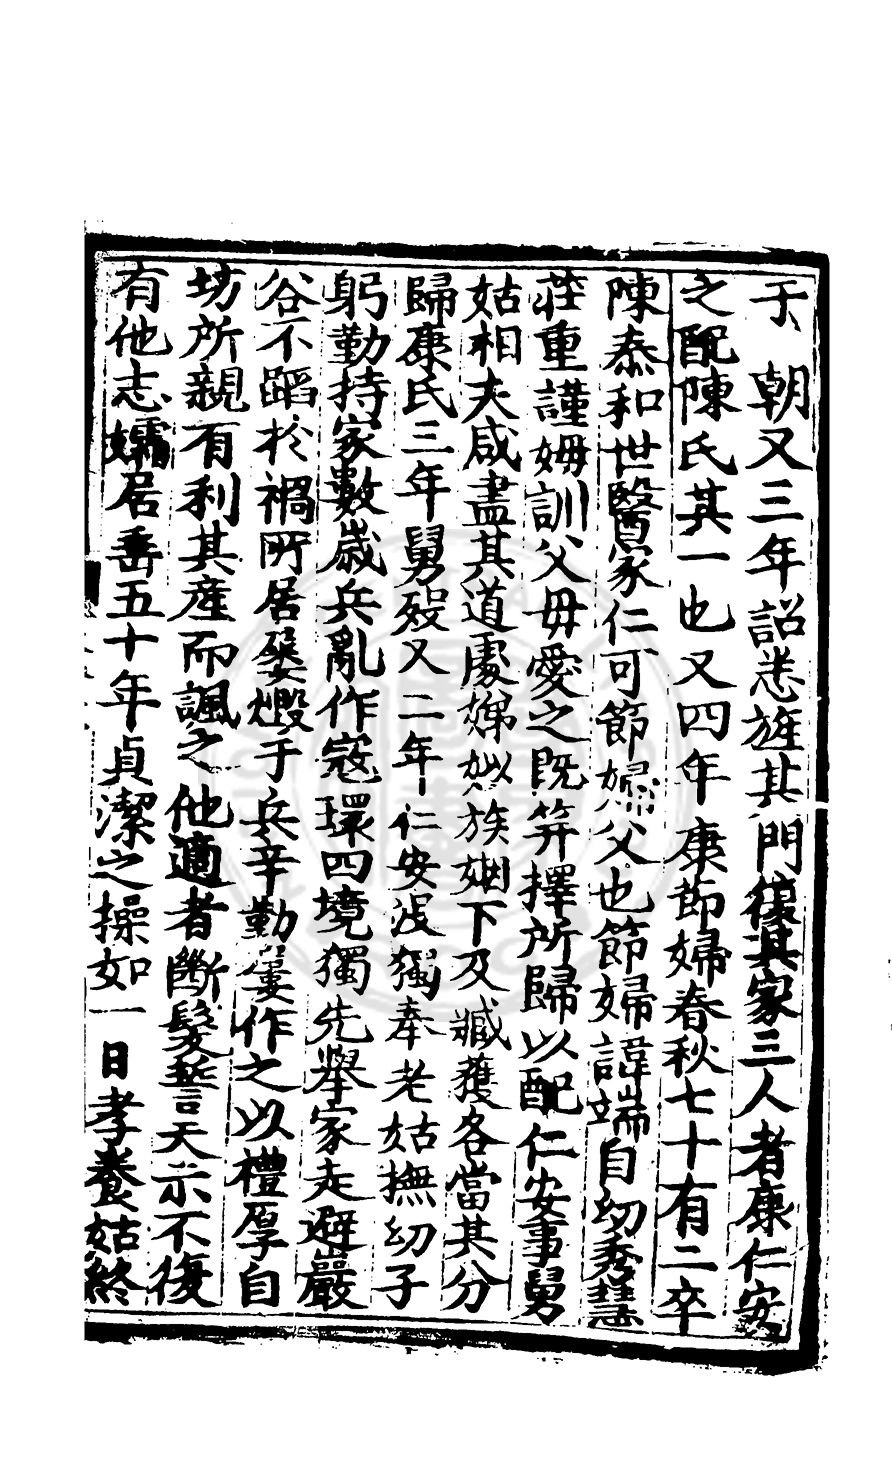 于　朝又三年詔悉旌其門復其家三人者康仁安
之配陳氏其一也又四年康節婦春秋七十有二卒
陳泰和世醫家仁可節婦父也節婦諱端自幼秀慧
莊重謹姆訓父母愛之既筓擇所歸以配仁安事舅
姑相夫咸盡其道處娣姒族姻下及臧獲各當其分
歸康氏三年舅歿又二年仁安没獨奉老姑撫幼子
躬勤持家數歲兵亂作寇環四境獨先舉家走避巖
谷不蹈於禍所居燬于兵辛勤葺作之以禮厚自
坊所親有利其產而諷之他適者斷髮誓天示不復
有他志孀居垂五十年貞潔之操如一日孝養姑終